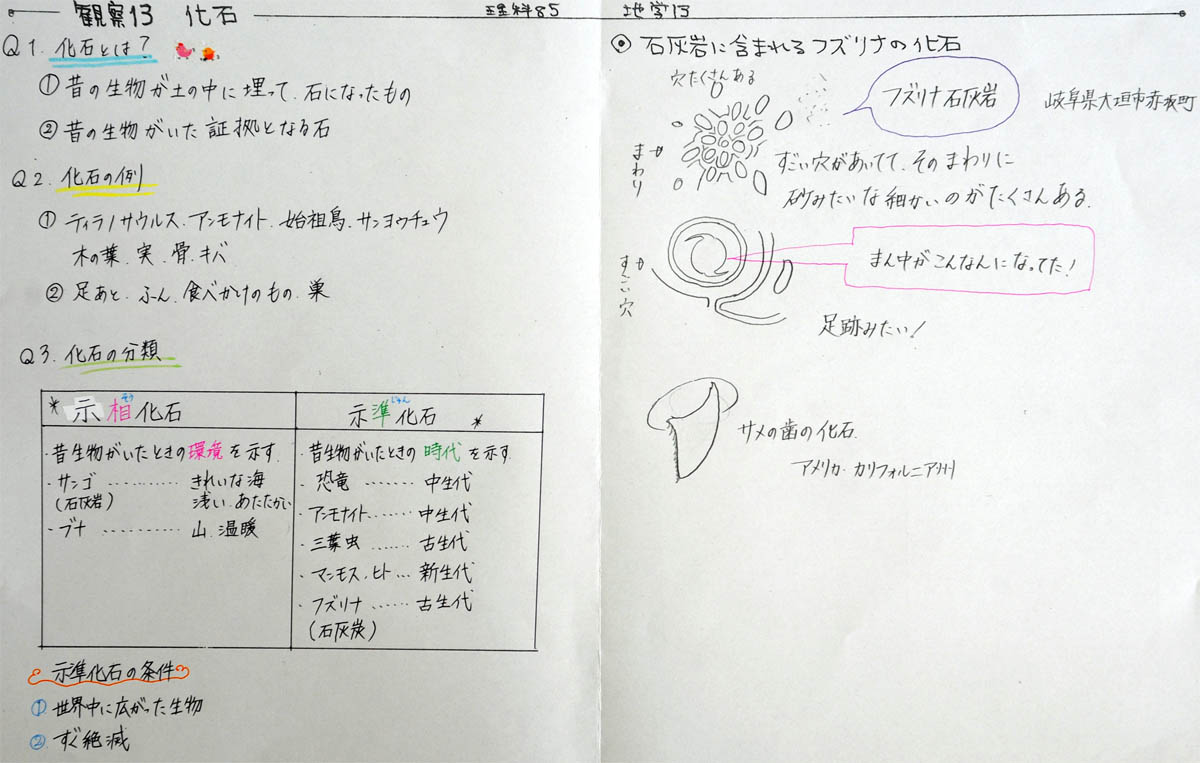 観察13 化石
理科85 地学13
Q1. 化石とは?
① 昔の生物が土の中に埋って、石になったもの
② 昔の生物がいた証拠となる石
Q2. 化石の例
① ティラノサウルス、アンモナイト、始祖鳥、サンヨウチュウ
木の葉、実、骨、キバ
② 足あと、ふん、食べかけのもの、巣
Q3. 化石の分類
* 示相化石
そう
・昔生物がいたときの環境を示す。
・サンゴ ………… きれいな海
(石灰岩) 浅い、あたたかい
・ブナ ………… 山、温暖
示準化石 *
じゅん
・昔生物がいたときの時代を示す。
・恐竜 ……… 中生代
・アンモナイト …… 中生代
・三葉虫 …… 古生代
・マンモス、ヒト … 新生代
・フズリナ …… 古生代
(石灰炭)
示準化石の条件
① 世界中に広がった生物
② すぐ絶滅
◉ 石灰岩に含まれるフズリナの化石
穴たくさんある
フズリナ石灰岩
岐阜県大垣市赤坂町
まわり
すごい穴があいてて、そのまわりに
砂みたいな細かいのがたくさんある。
すごい穴
まん中がこんなんになってた!
足跡みたい!
サメの歯の化石
アメリカ・カリフォルニア州